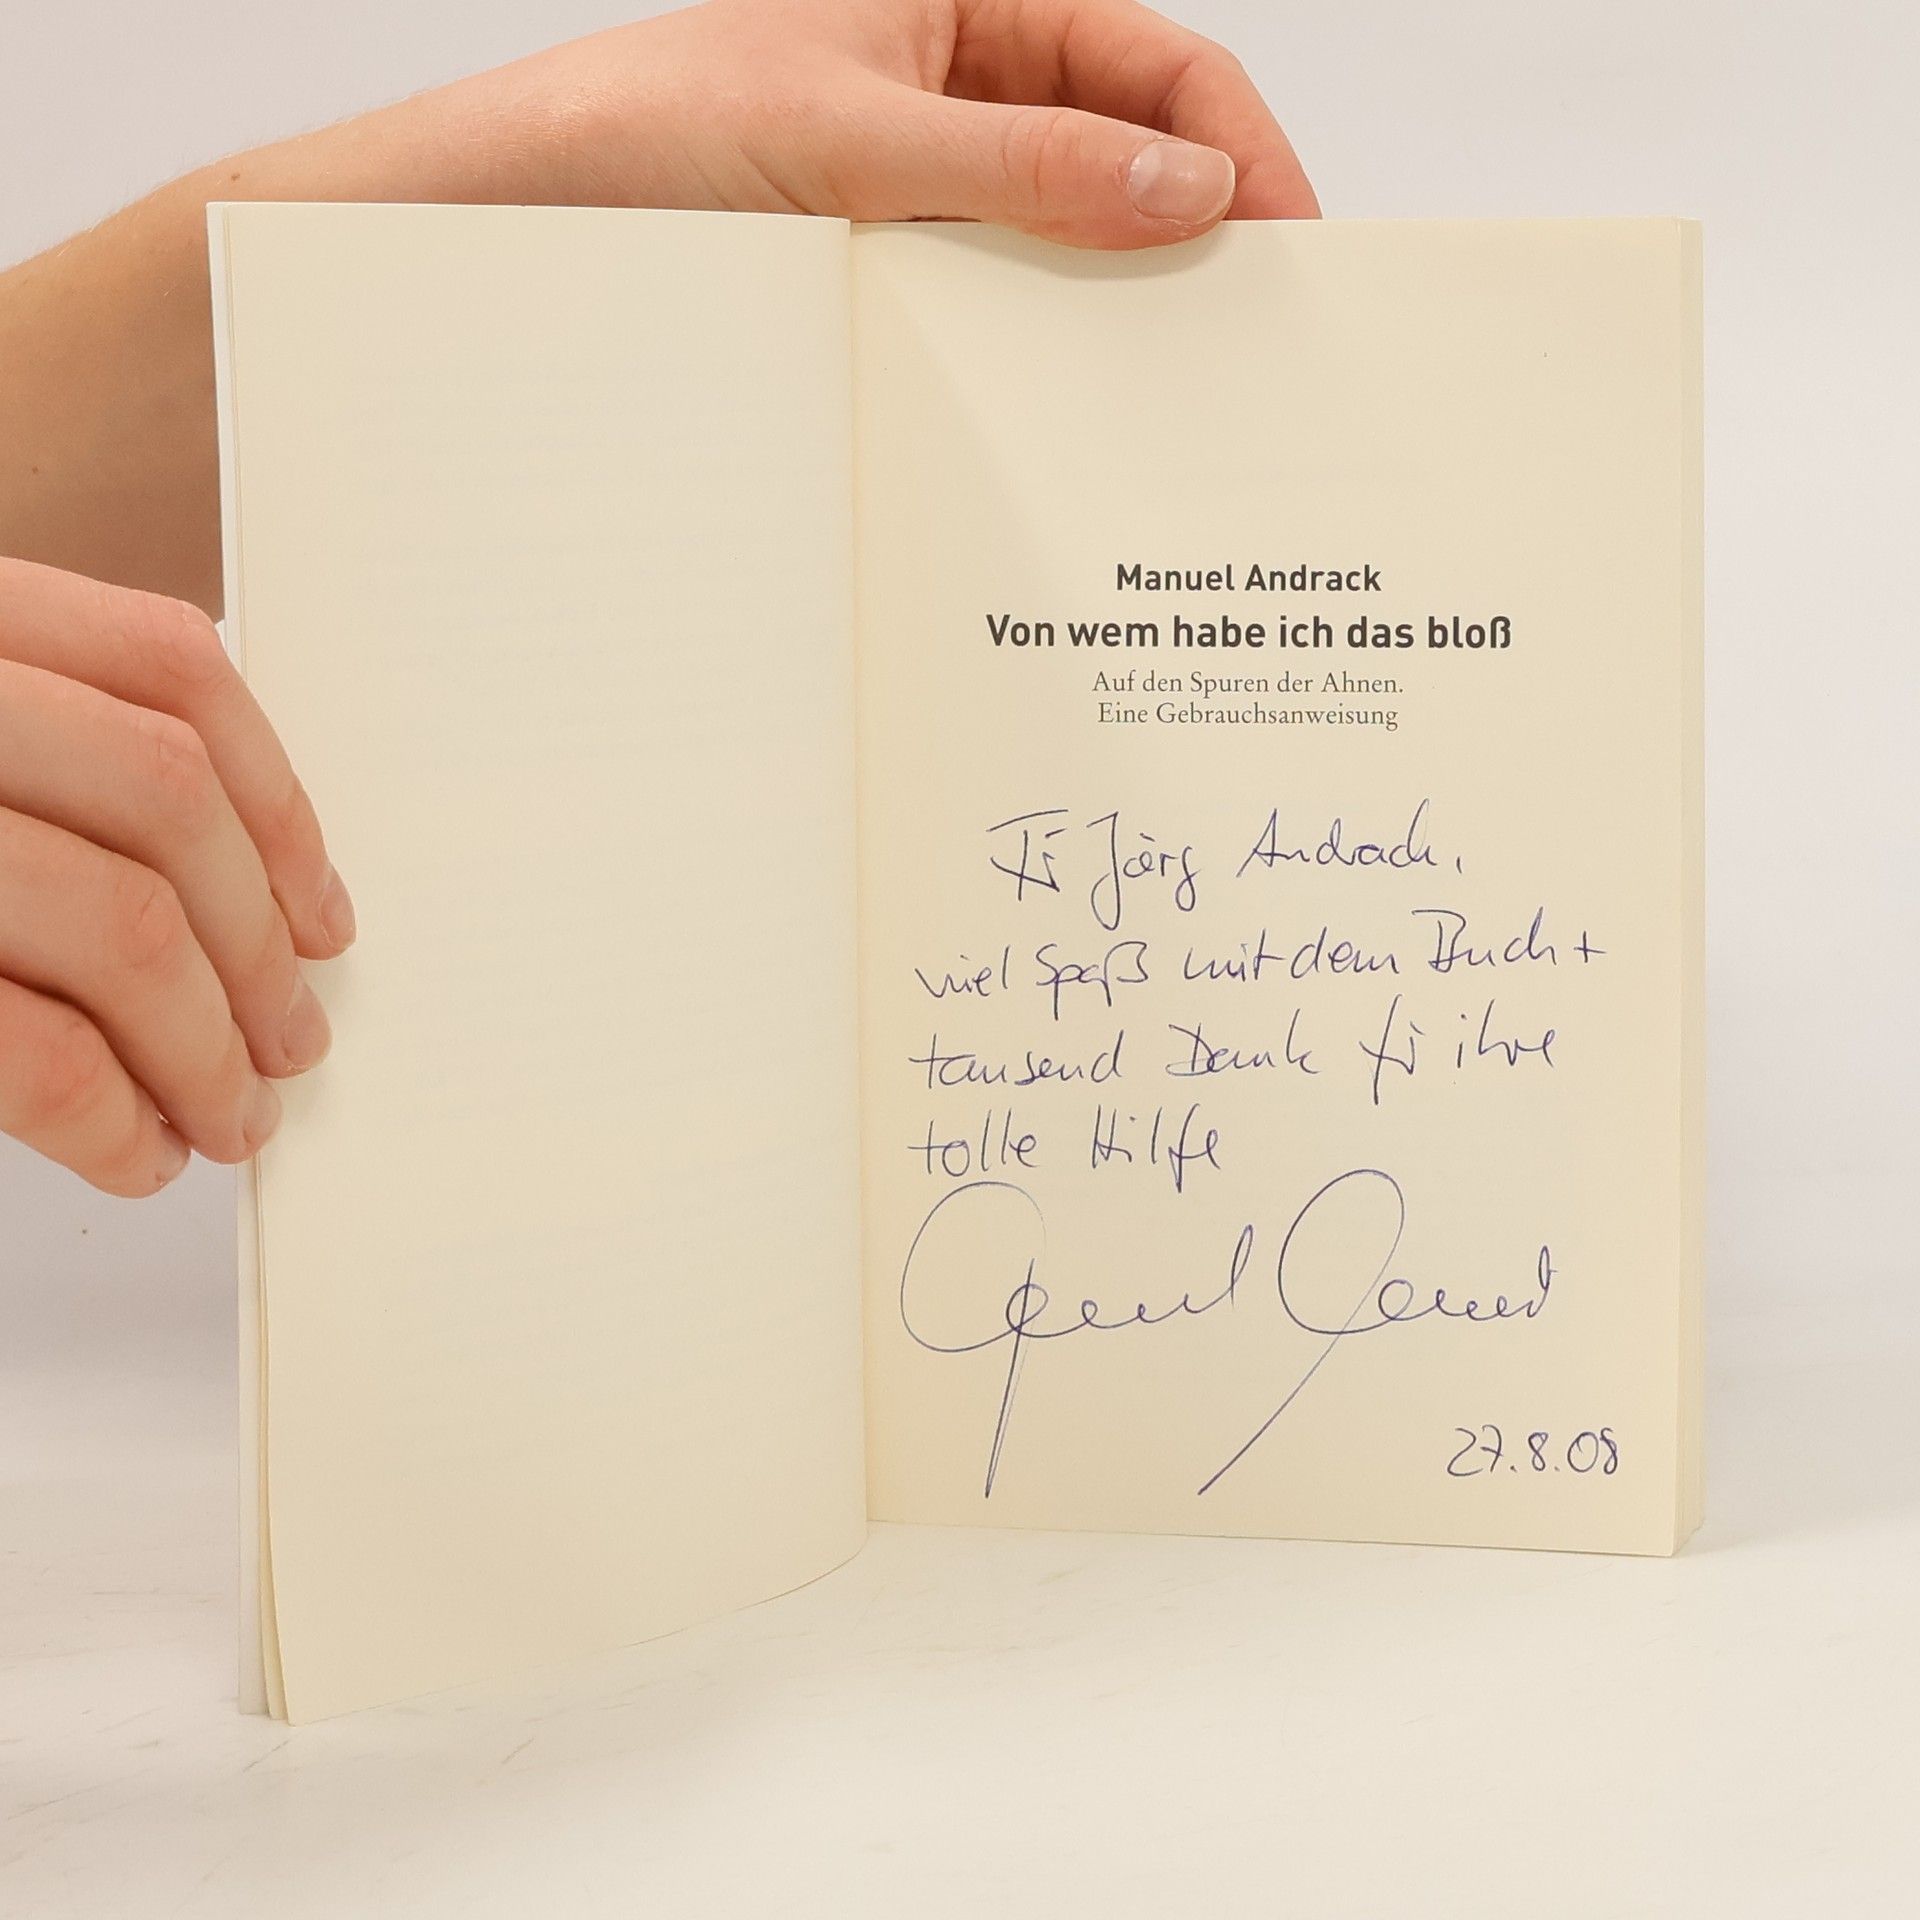 Manuel Andrack
Von wem habe ich das bloß
Auf den Spuren der Ahnen.
Eine Gebrauchsanweisung
Für Jörg Andrack,
viel Spaß mit dem Buch +
tausend Dank für ihre
tolle Hilfe
27.8.08